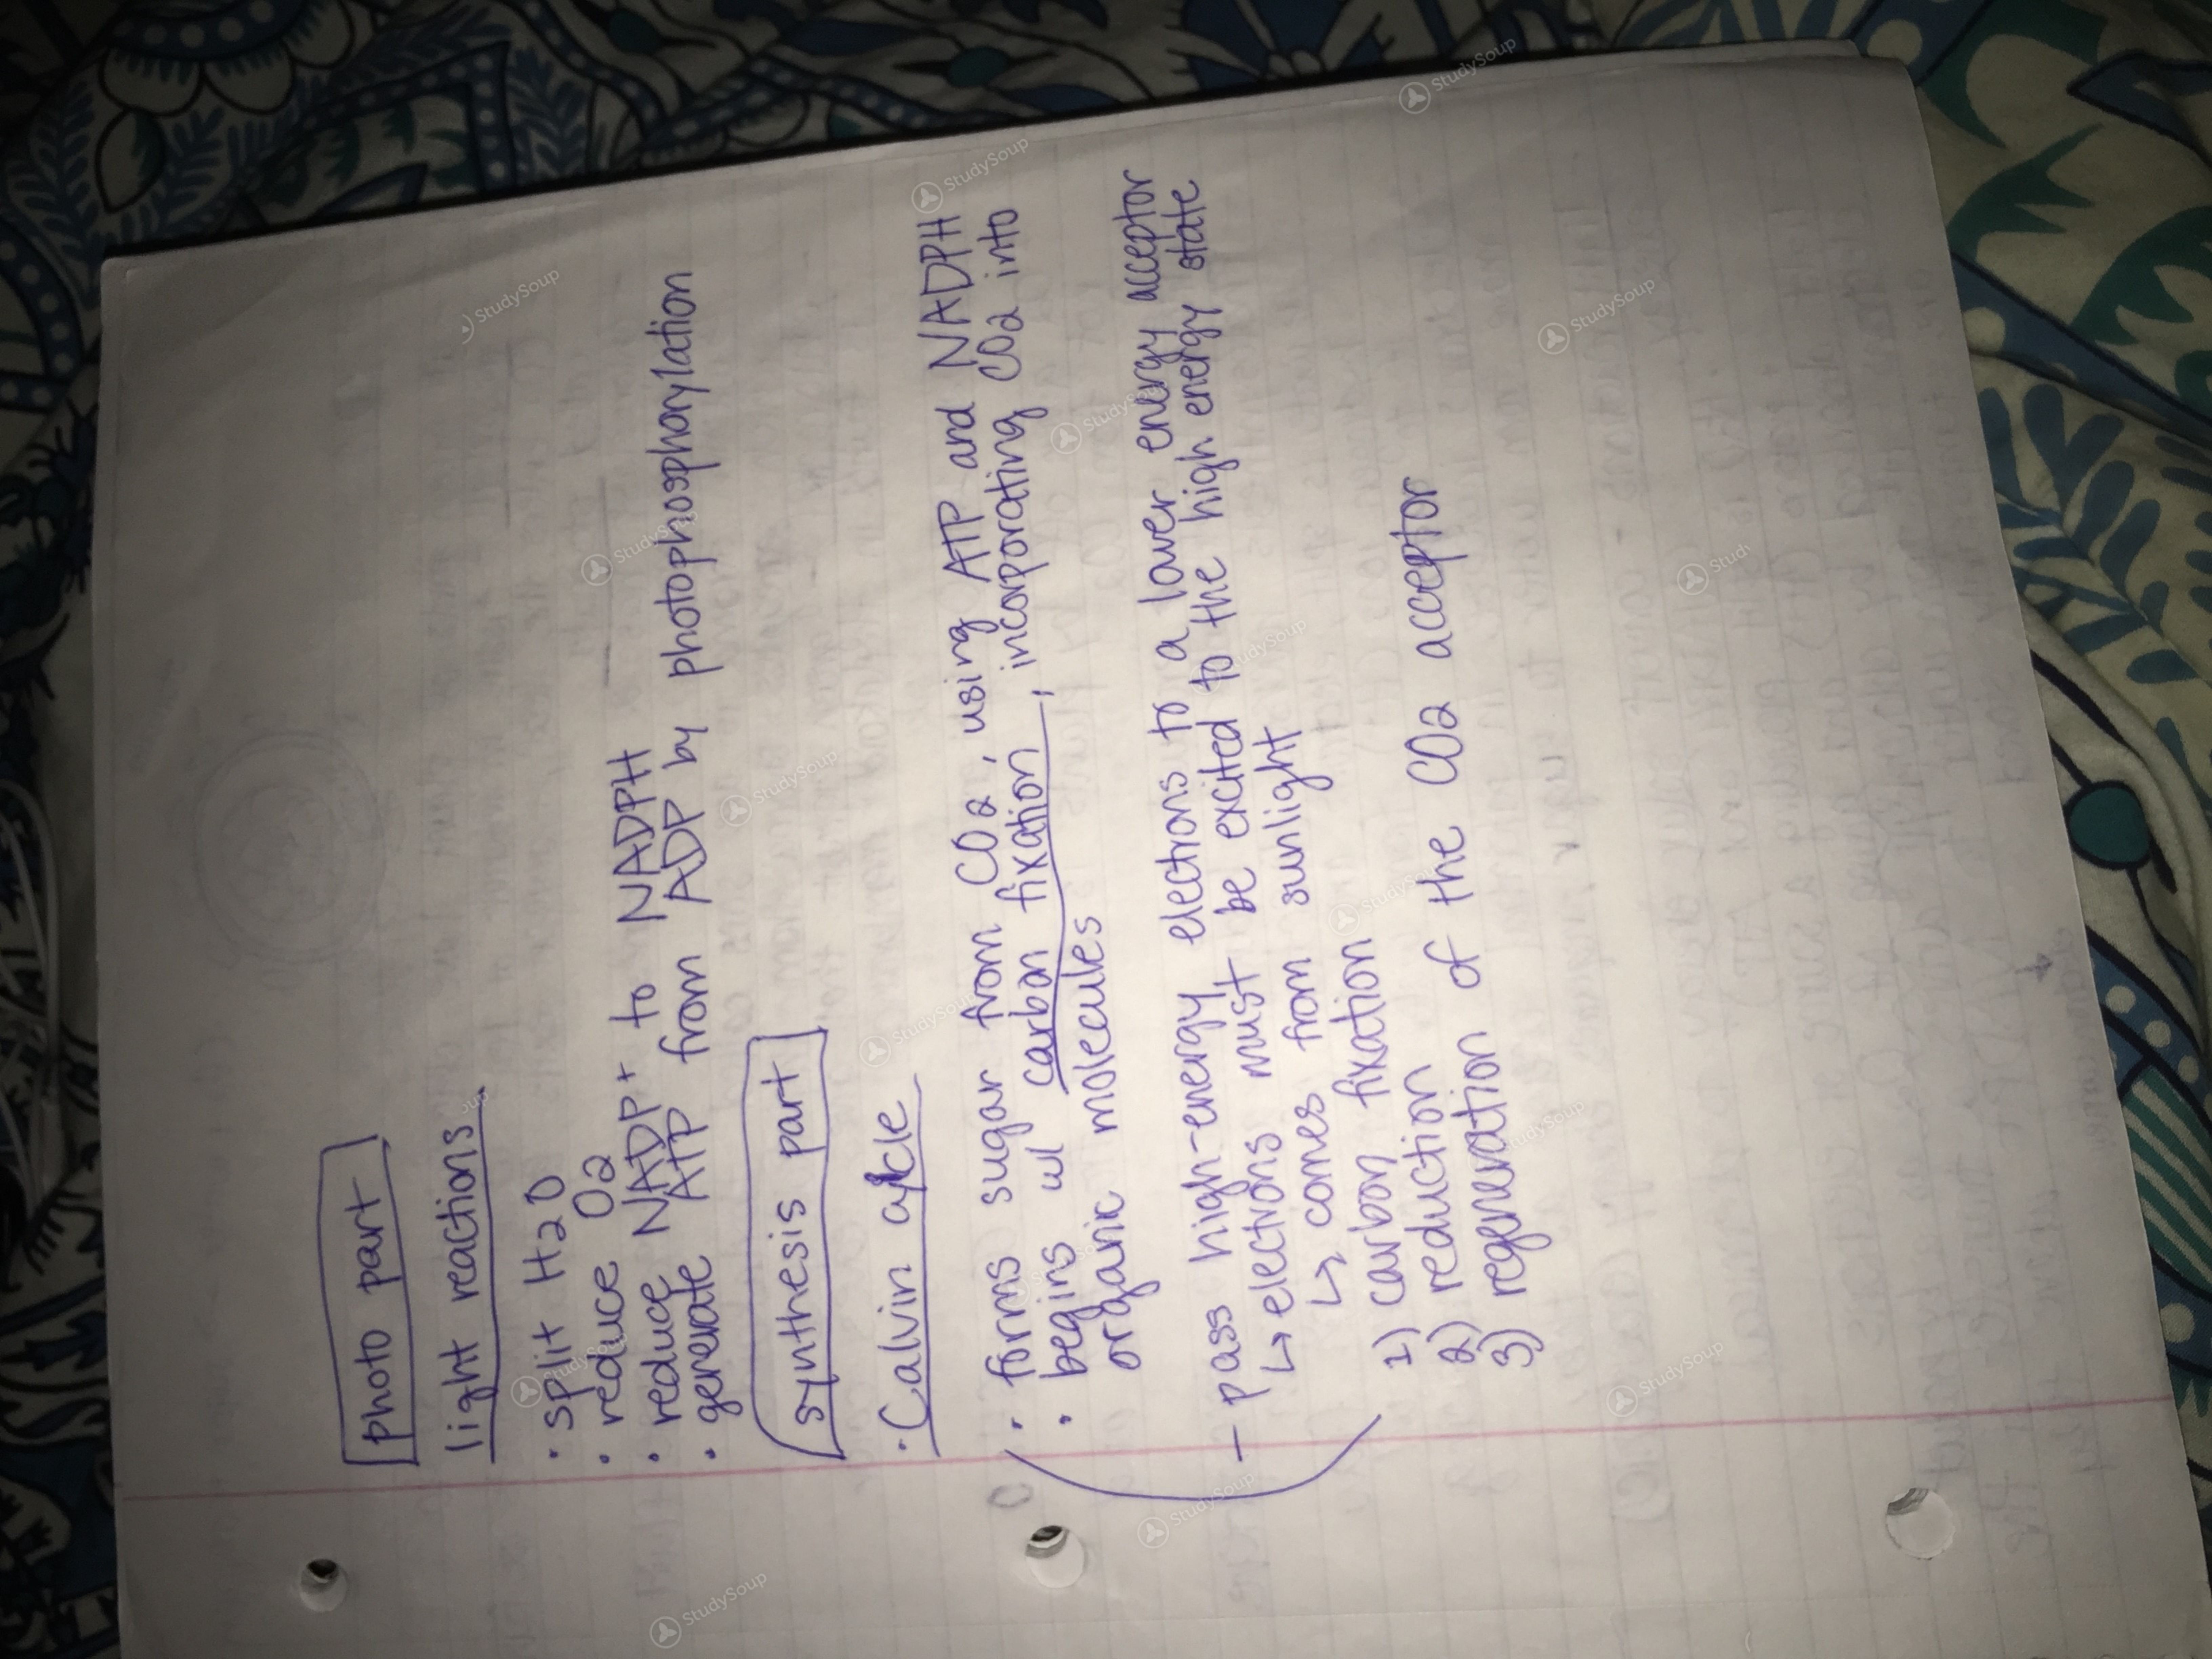 photo part
light reactions
• split H2O
• reduce O2
• reduce NADP+ to NADPH
• generate ATP from ADP by photophosphorylation
synthesis part
• Calvin cycle
• forms sugar from CO2, using ATP and NADPH
• begins w/ carbon fixation, incorporating CO2 into
organic molecules
- pass high-energy electrons to a lower energy acceptor
↳ electrons must be excited to the high energy state
↳ comes from sunlight
1) carbon fixation
2) reduction
3) regeneration of the CO2 acceptor
StudySoup